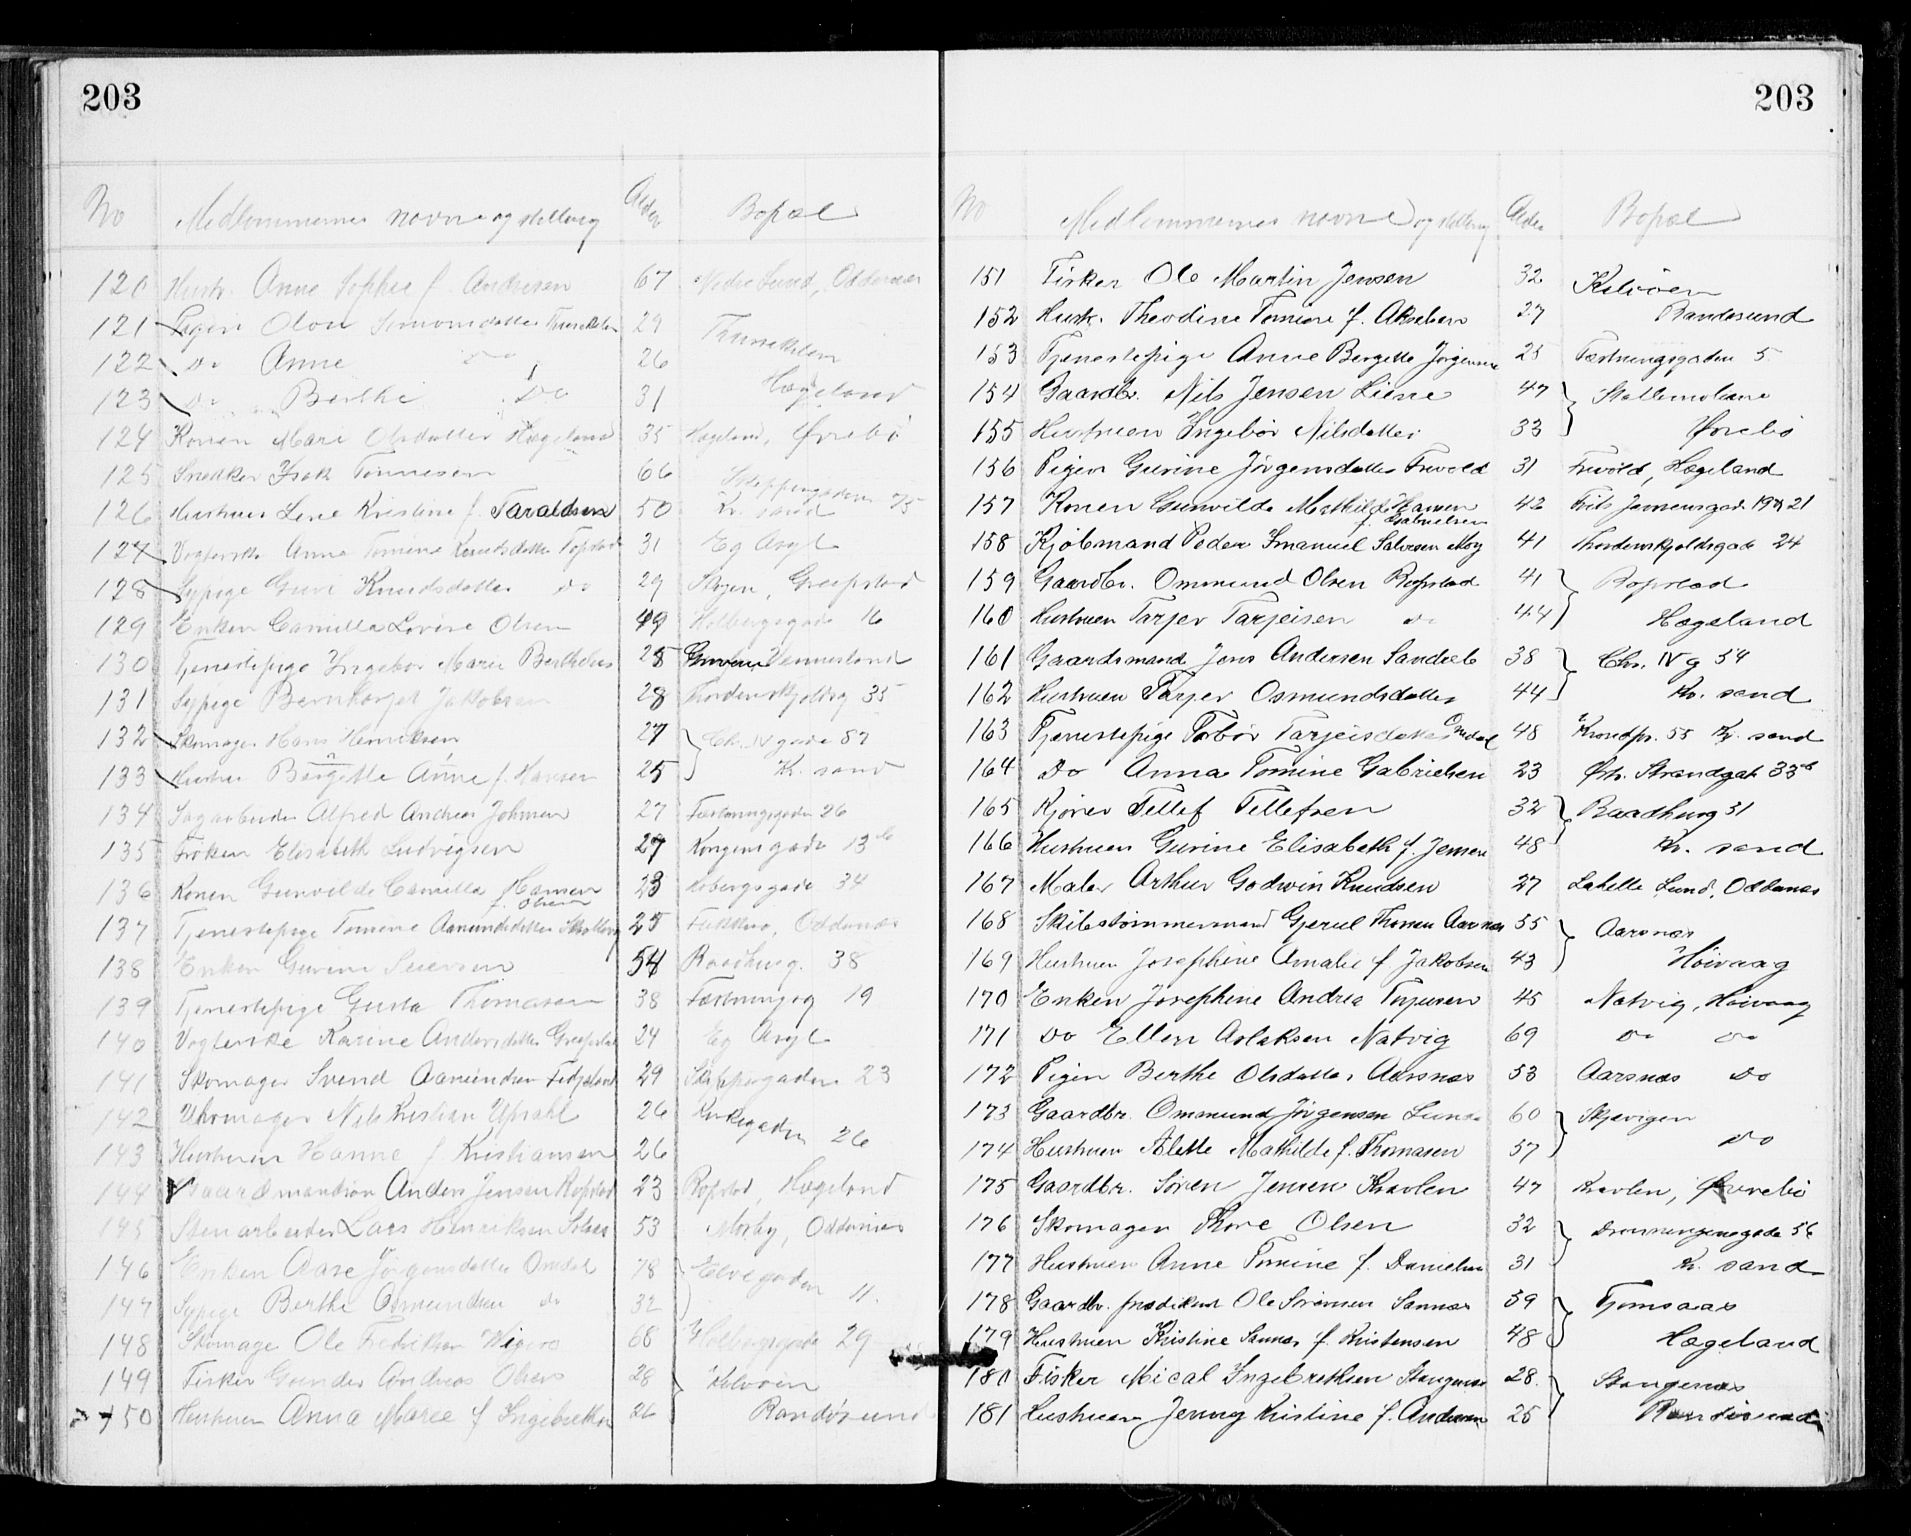 203
No Medlemmernes navne og stilling Alder Bopæl
120 Hustr. Anne Sophie f. Andresen 67 Nedre Lund, Oddernæs
121 Pigen Olon Simonsdatter 29
122 Do Anne Do 26
123 Do Berthe Do 31 Hægeland
124 Konen Mari Olsdatter Hægeland 35 Hægeland, Øvrebø
125 Snedker Isak Tønnesen 66
126 Hustruen Lene Kristine f. Taraldsen 50 Kr. sand
127 Vogterske Anne Tomine Knudsdatter 31 Eg Asyl
128 Sypige Guri Knudsdatter do 29 Greipstad
129 Enken Camilla Lovise Olsen 49 Holbergsgade 16
130 Tjenestepige Ingebor Marie Berthelsen 28 Vennesland
131 Sypige Jakobsen 28 Thordenskjoldsg 35
132 Skomager Hans Henriksen 27 Chr. IV gade 87
133 Hustru Bergette Anne f. Hansen 25 Kr. sand
134 Sagarbeider Alfred Andreas Johnsen 27 Fæstningsgaden 26
135 Frøken Elisabeth Ludvigsen 27 Kongensgade 13b
136 Konen Gunvilde Camilla Hansen f. Olsen 23 Holbergsgade 34
137 Tjenestepige Tomine Aanundsdatter 25 Oddernæs
138 Enken Gurine Sivertsen 54 Raadhusg. 38
139 Tjenestepige Gusta Thomasen 38 Fæstningsg 19
140 Vogterske Karine Andersdatter Greipstad 24 Eg Asyl
141 Skomager Svend Aanundsen Fidjeland 29 Skippergaden 23
142 Uhrmager Nils Kristian Upsahl 26 Kirkegaden 26
143 Hustruen Hanne f Kristiansen 26
144 Gaardmandsøn Anders Jensen Ropstad 23 Ropstad, Hægeland
145 Stenarbeider Lars Henriksen 53 Mosby, Oddernæs
146 Enken Aase Jørgensdatter Omdal 78 Elvegaden 11.
147 Sypige Berthe Osmundsen do 32
148 Skomager Ole Fredriksen 68 Holbergsgade 29
149 Fisker Gunder Andreas Olsen 28 Kelvøen
150 Hustruen Anna Marie f Ingebretsen 26 Randøsund
203
No Medlemmernes navne og stilling Alder Bopæl
151 Fisker Ole Martin Jensen 32 Kelvøen
152 Hustr. Theodine Tomine f. Akselsen 27 Randøsund
153 Tjenestepige Anne Bergette Jørgensen 25 Fæstningsgaden 5
154 Gaardbr. Nils Jensen Liene 47 Stallemolane
155 Hustruen Ingebør Nilsdatter 33 Øvrebø
156 Pigen Gurine Jørgensdatter Frivold 31 Frivold, Hægeland
157 Konen Gunvilde Mathilde Hansen f. Gabrielsen 42 Frits Jensensgade 19 & 21
158 Kjøbmand Peder Emanuel Salvesen Moy 41 Thordenskjoldsgade 24
159 Gaardbr. Ommund Olsen Ropstad 41 Ropstad
160 Hustruen Tarjer Tarjeisen do 44 Hægeland
161 Gaardsmand Jens Andersen Sandieb 38 Chr. IV g 54
162 Hustruen Tarjer Osmundsdatter 44 Kr. sand
163 Tjenestepige Torbør Tarjeisdatter Omdal 48 Kronpr. 55 Kr. sand
164 Do Anna Tomine Gabrielsen 23 Østr. Strandgade 33b
165 Kjører Tellef Tellefsen 32 Raadhusg 31
166 Hustruen Gurine Elisabeth f. Jensen 48 Kr. sand
167 Maler Arthur Godwin Knudsen 27 Lahelle Lund, Oddernæs
168 Skibstømmermand Gjerul Thomsen Aarsnæs 55 Aarsnæs
169 Hustruen Josephine Amalie f Jakobsen 43 Høivaag
170 Enken Josephine Andrea Terjusen 45 Natvig, Høivaag
171 Do Ellen Aslaksen Natvig 69 Do Do
172 Pigen Berthe Olsdatter Aarsnæs 53 Aarsnæs Do
173 Gaardbr. Ommund Jørgensen Lunde 60 Skjævigen
174 Hustruen Alette Mathilde f. Thomasen 57 Do
175 Gaardbr. Søren Jensen Kravlen 47 Kravlen, Øvrebø
176 Skomager Thore Olsen 32 Dronningensgade 56
177 Hustruen Anne Tomine f. Danielsen 31 Kr. sand
178 Gaardbr. prædikant Ole Sørensen Sannæs 39 Tjomsaas
179 Hustruen Kristine Sannæs f. Kristensen 48 Hægeland
180 Fisker Mical Ingebrethsen Stangenæs 28. Stangenæs
181 Hustruen Jenny Kristine f. Andersen 25 Randøsund